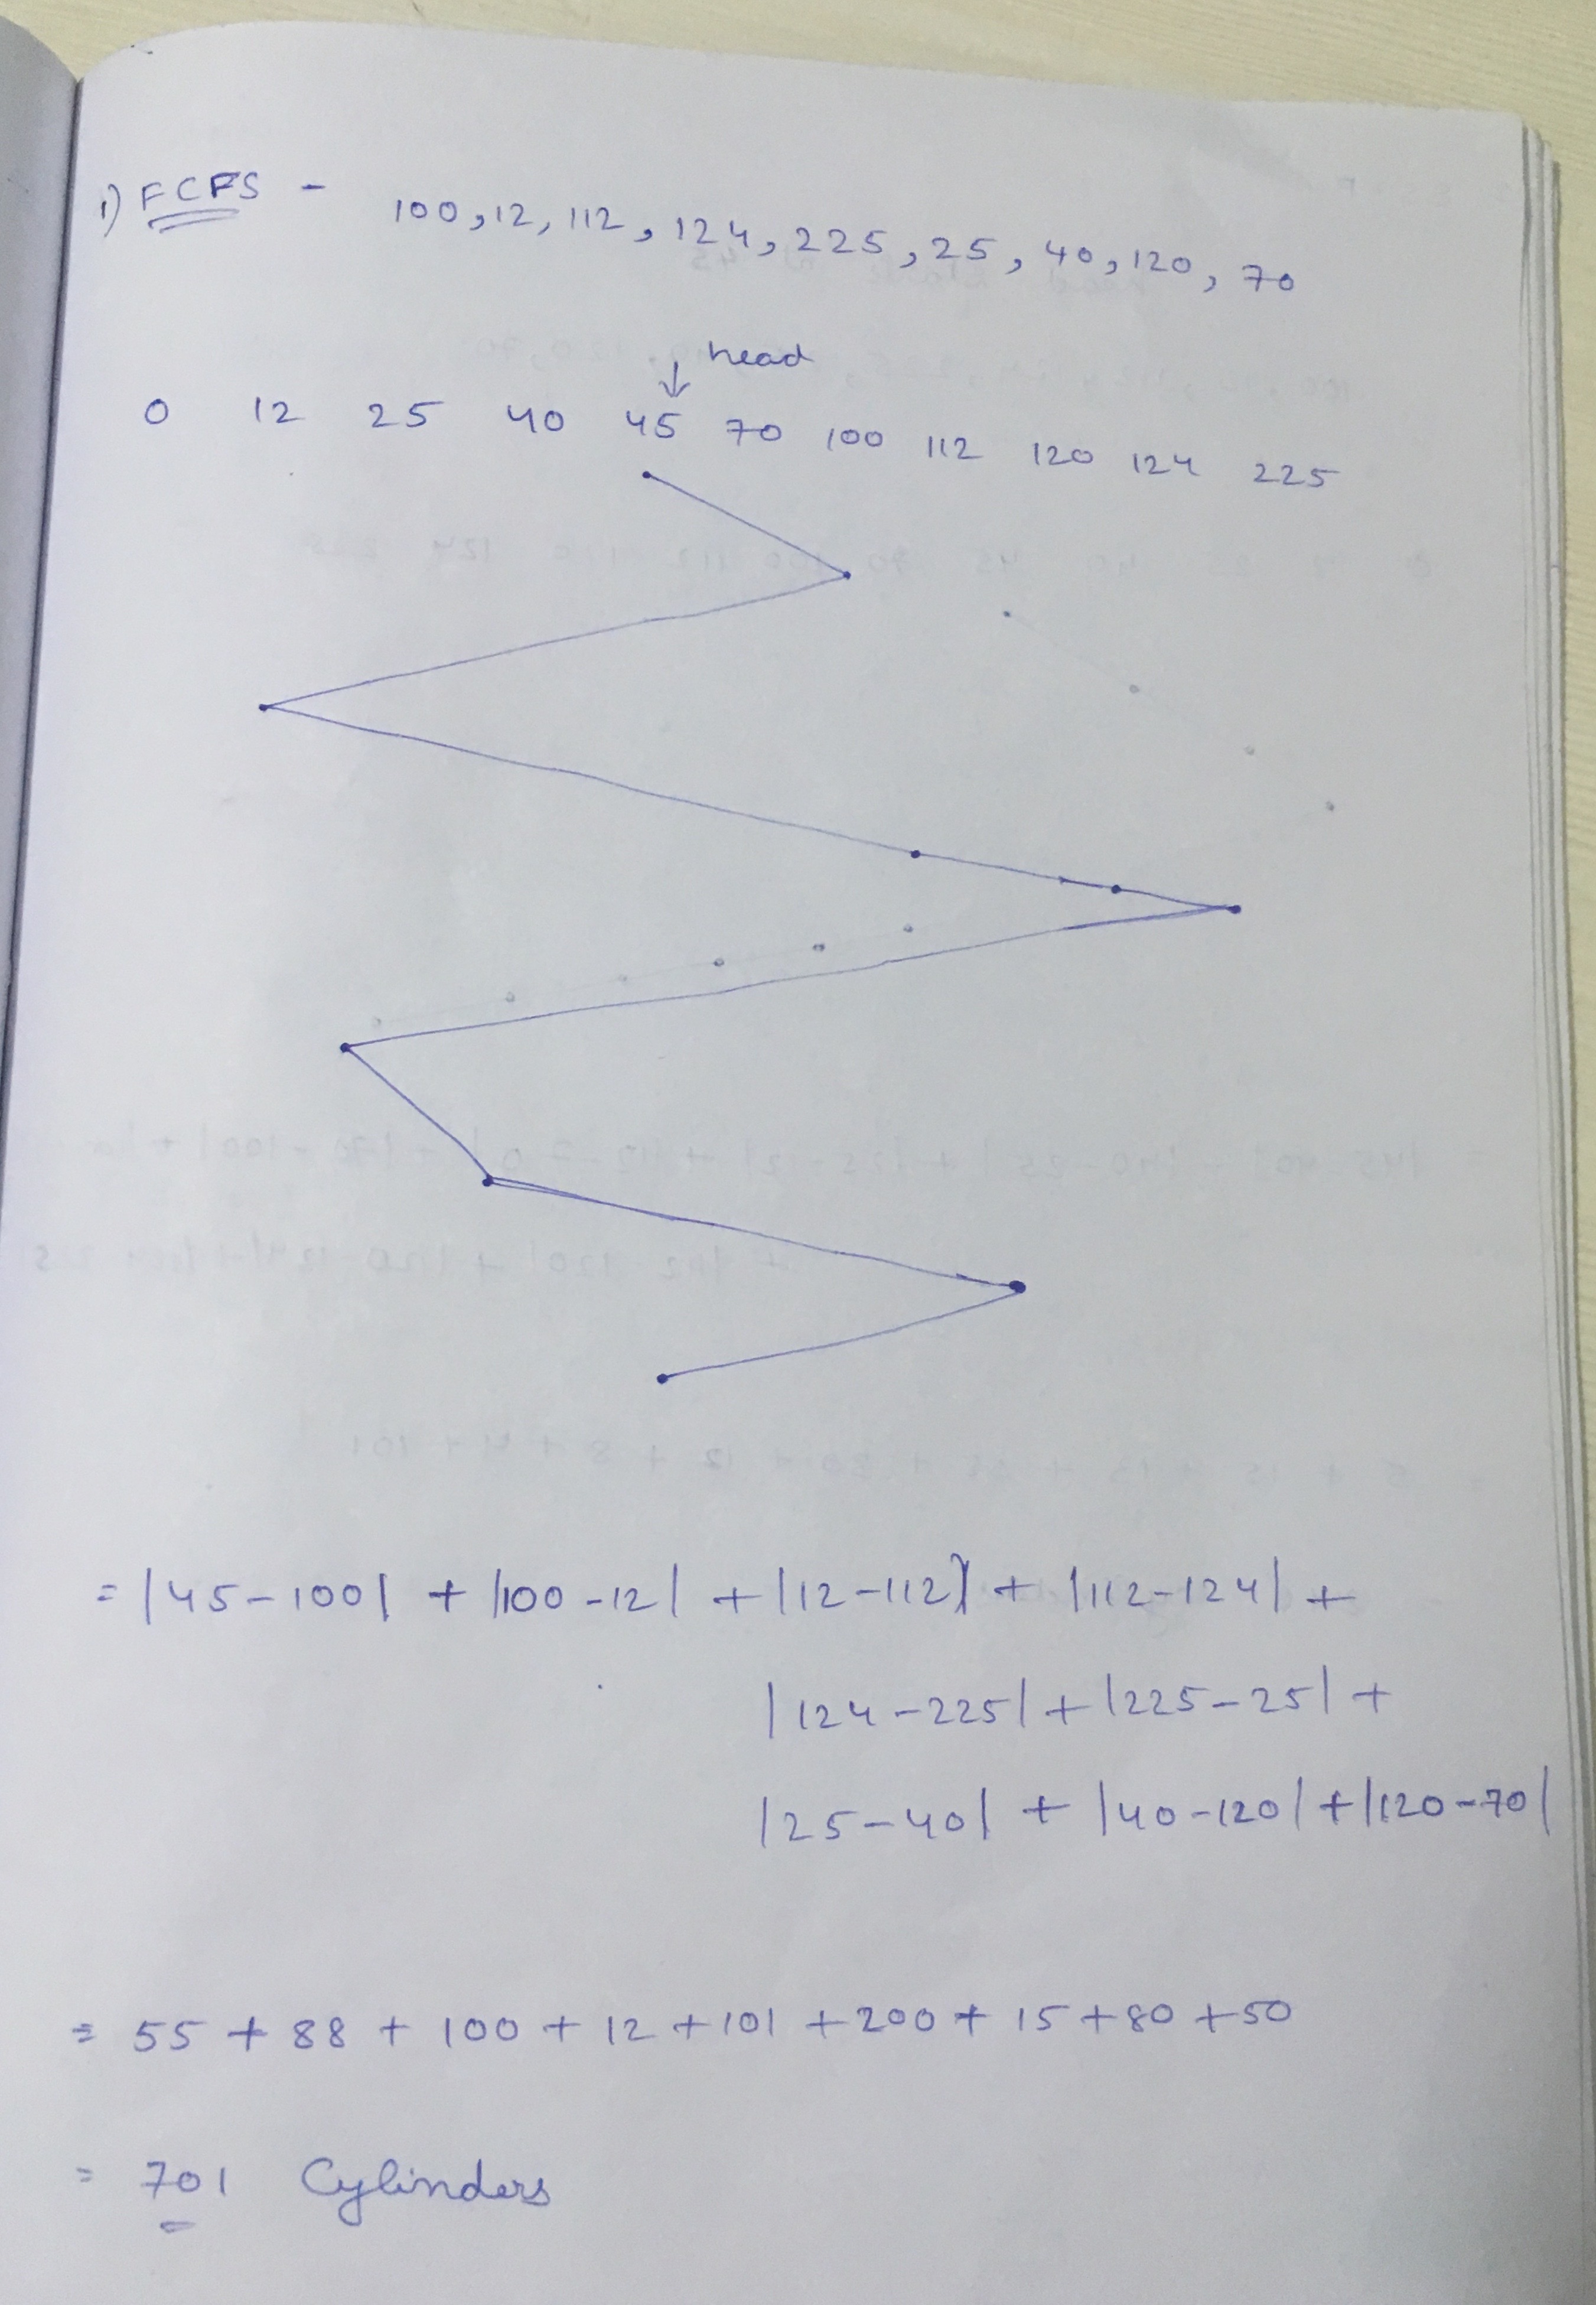 1) FCFS - 100, 12, 112, 124, 225, 25, 40, 120, 70
↓ head
0 12 25 40 45 70 100 112 120 124 225
= |45-100| + |100-12| + |12-112| + |112-124| +
|124-225| + |225-25| +
|25-40| + |40-120| + |120-70|
= 55 + 88 + 100 + 12 + 101 + 200 + 15 + 80 + 50
= 701 Cylinders